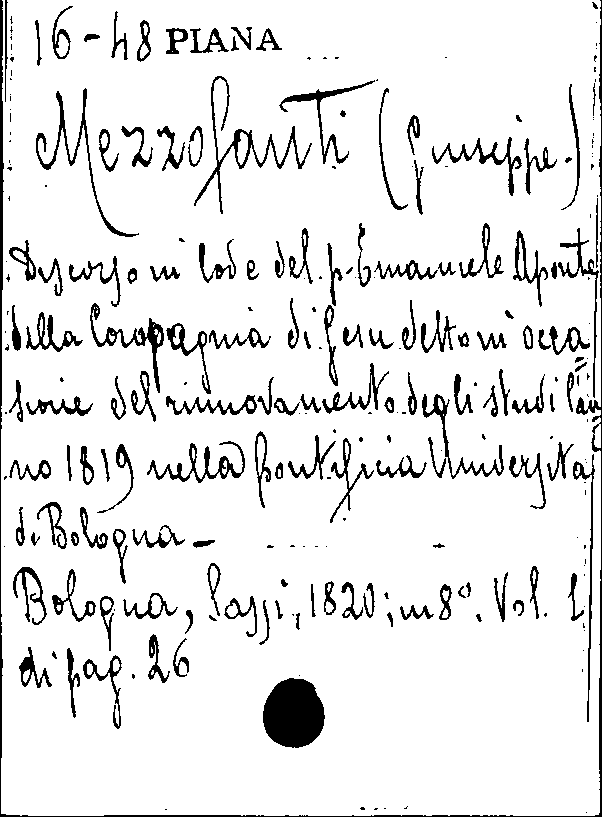 16-48 PIANA
Mezzofanti (Giuseppe.)
Discorso in lode del p. Emanuele Aponte
della Compagnia di Gesu detto in occa=
sione del rinnovamento degli studi l'an=
no 1819 nella Pontificia Università
di Bologna -
Bologna, Sassi, 1820; in 8°. Vol. 1
di pag. 26